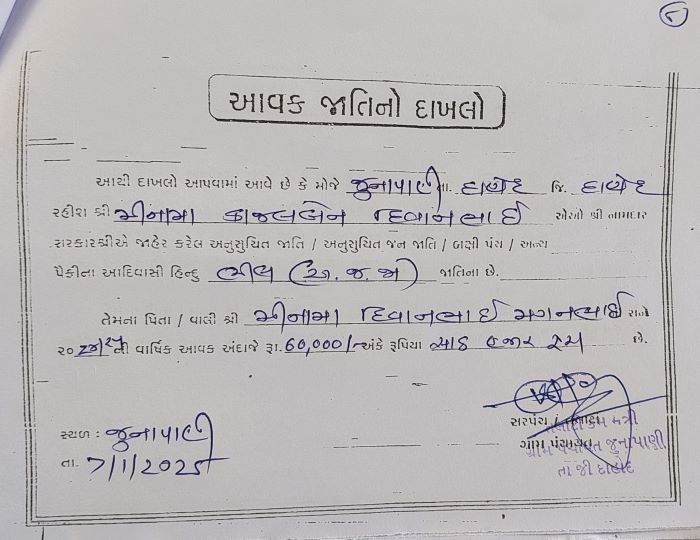 ૮
આવક જાતિનો દાખલો
આથી દાખલો આપવામાં આવે છે કે મોજે જુનાપાણી તા. દાહોદ જિ. દાહોદ
રહીશ શ્રી મીનામા કાજલબેન દિવાનભાઈ એઓ શ્રી નામદાર
સરકારશ્રીએ જાહેર કરેલ અનુસુચિત જાતિ / અનુસુચિત જન જાતિ / બક્ષી પંચ / અન્ય
પૈકીના આદિવાસી હિન્દુ ભીલ (અ. જ. જા) જાતિના છે.
તેમના પિતા / વાલી શ્રી મીનામા દિવાનભાઈ મગનભાઈ સને
૨૦૨૪/૨૫ની વાર્ષિક આવક અંદાજે રૂા. 60,000/- અંકે રૂપિયા સાઠ હજાર છે.
સ્થળ : જુનાપાણી
તા. 7/1/2025
સરપંચ / તલાટી કમ મંત્રી
ગ્રામ પંચાયત
ગ્રામ પંચાયત જુનાપાણી
તા જી દાહોદ